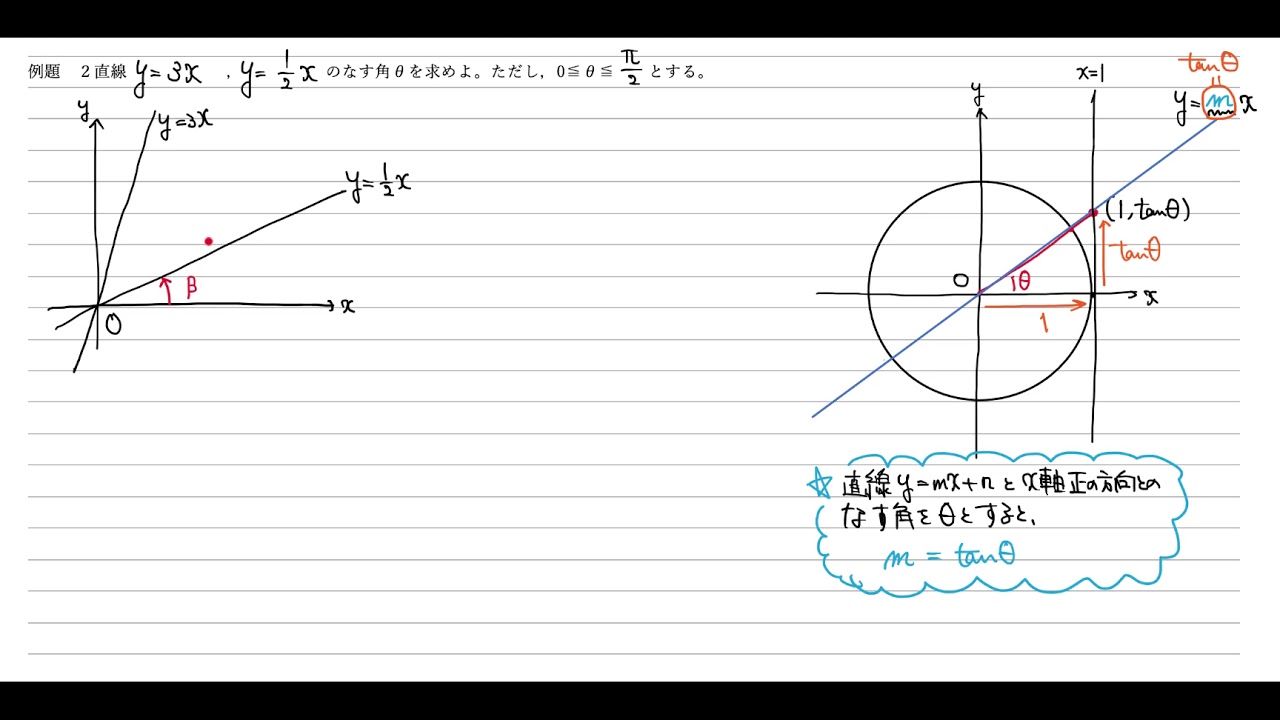 例題 2直線 y=3x , y=1/2 x のなす角θを求めよ。ただし，0≦θ≦π/2とする。
y
y=3x
y=1/2 x
β
x
O
tanθ
x=1
y
y=mx
(1, tanθ)
tanθ
O
θ
x
1
☆ 直線y=mx+nとx軸正の方向との
なす角をθとすると、
m = tanθ